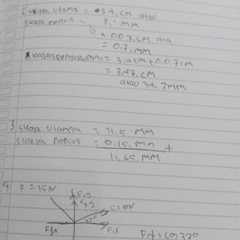 Skala utama = 3,9 cm atau
skala nonius = 3, mm
11 = 0.07 cm atau
= 0.7 mm
* Hasil pengukuran = 3,9 cm + 0.07 cm
= 3,97 cm
atau 39,7 mm
3 skala utama = 11,5 mm
skala nonius = 0,15 mm +
11,65 mm
4 F = 15N
F2y
F1y
F = 10N
37°
F2x
F1x